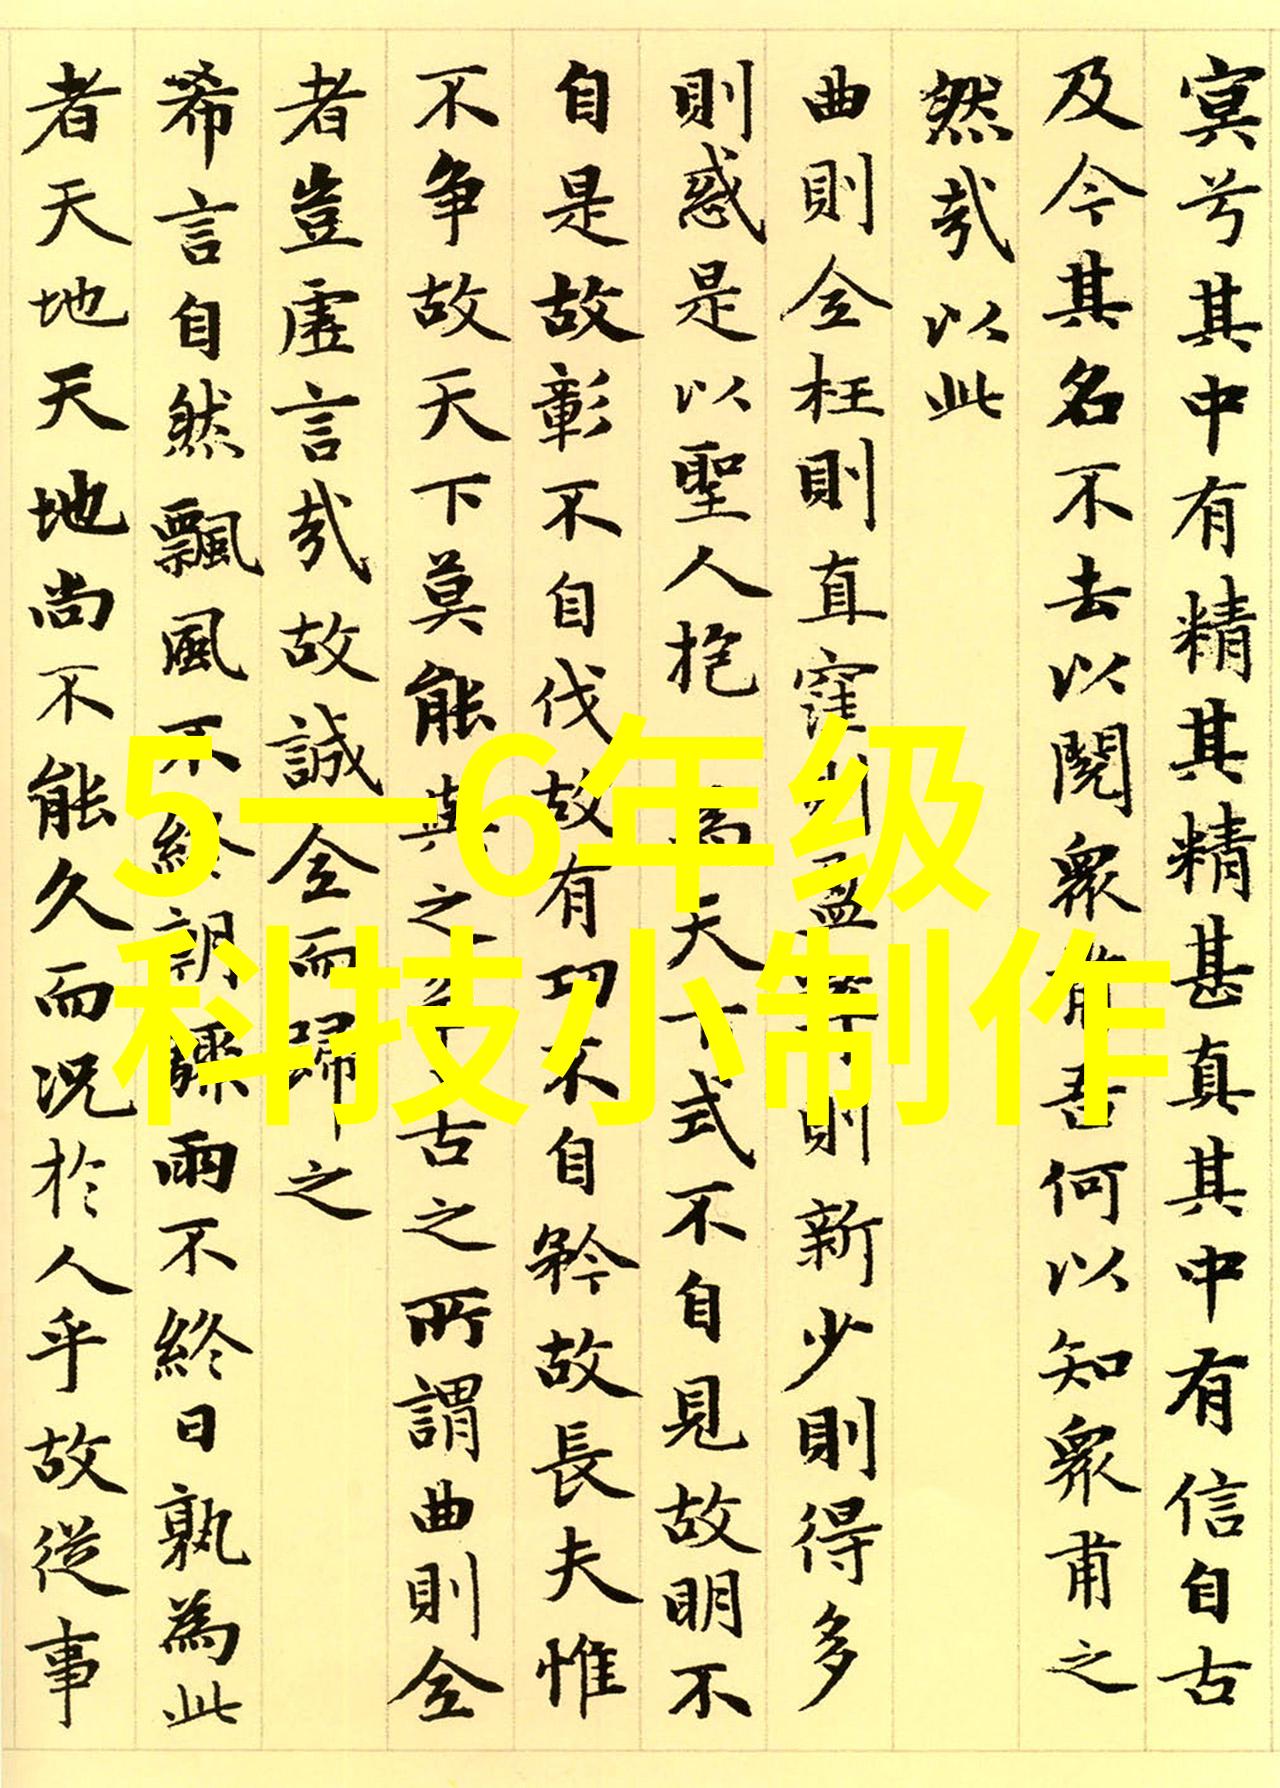 冥兮其中有精其精甚真其中有信自古
及今其名不去以閱衆甫吾何以知衆甫之
然哉以此
曲則全枉則直窪則盈則新少則得多
則惑是以聖人抱為天下式不自見故明不
自是故彰不自伐故有功不自矜故長夫惟
不争故天下莫能與之争古之所謂曲則全
者豈虛言哉故誠全而歸之
希言自然飄風不終朝驟雨不終日孰為此
者天地天地尚不能久而況於人乎故從事
5一6年级
科技小制作